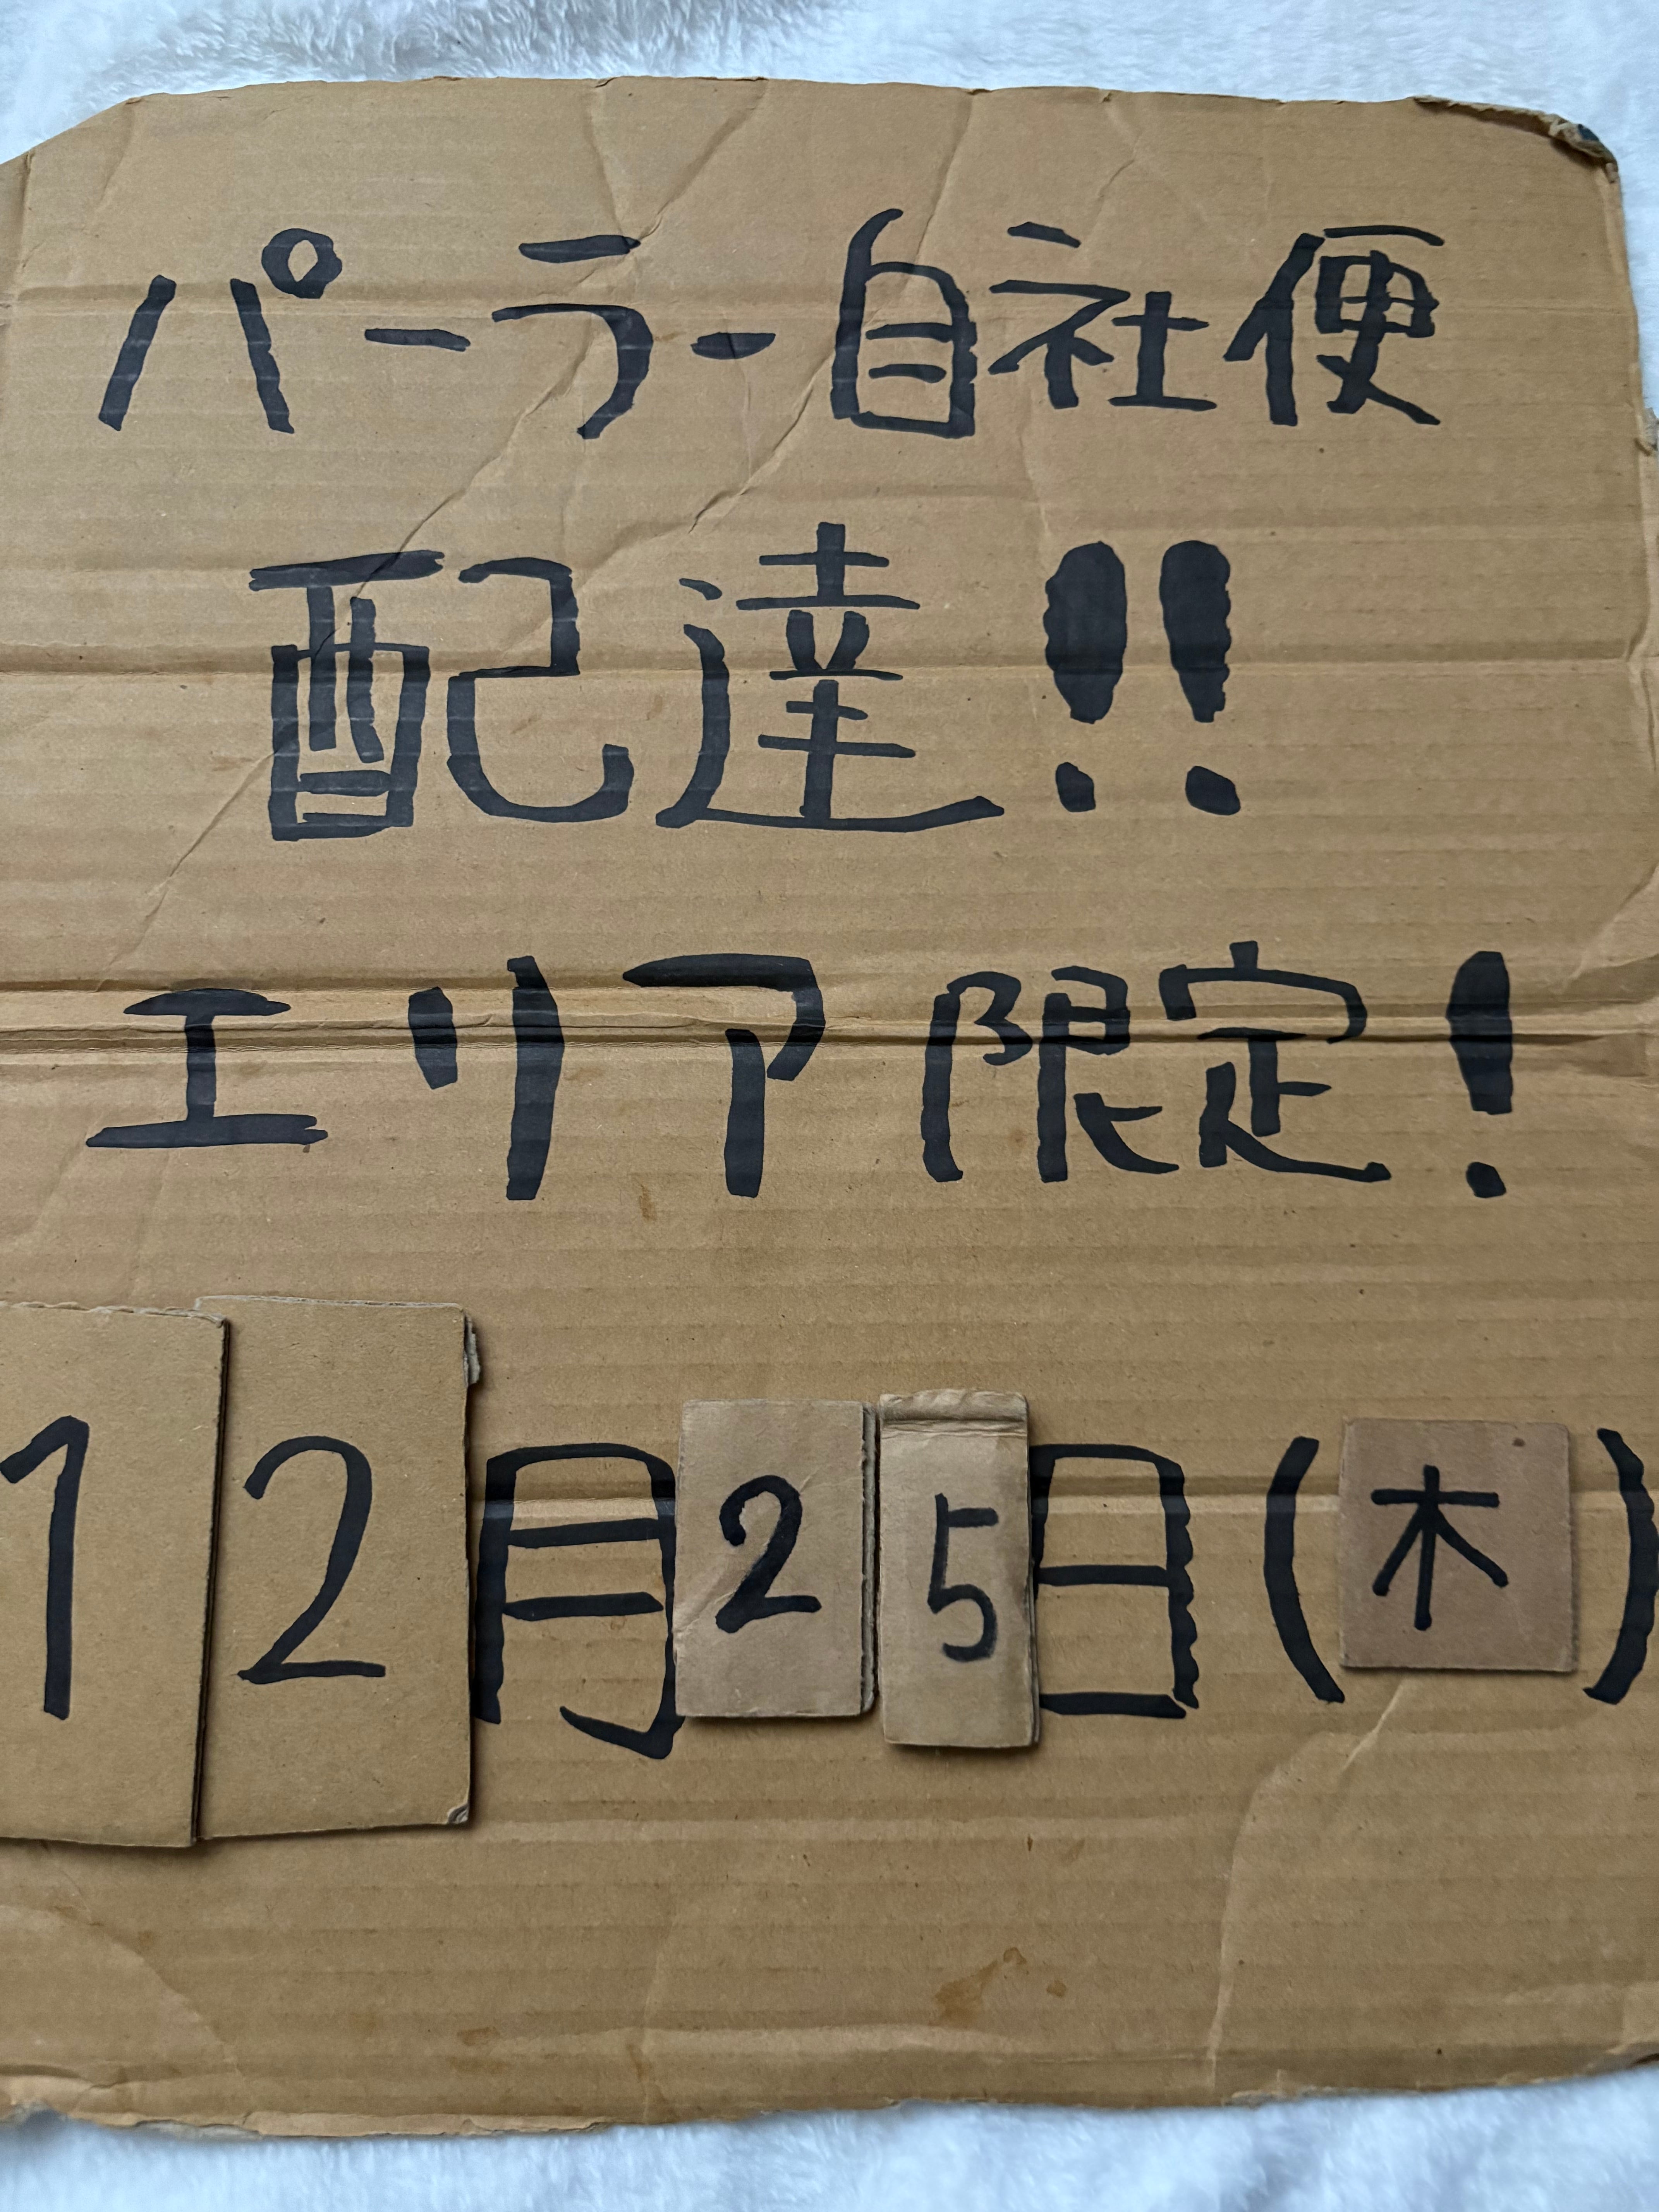 パーラー自社便
配達!!
エリア限定!
12月25日(木)